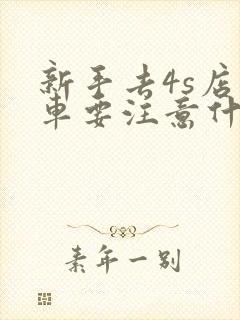 新手去4s店
车要注意什
素年一别